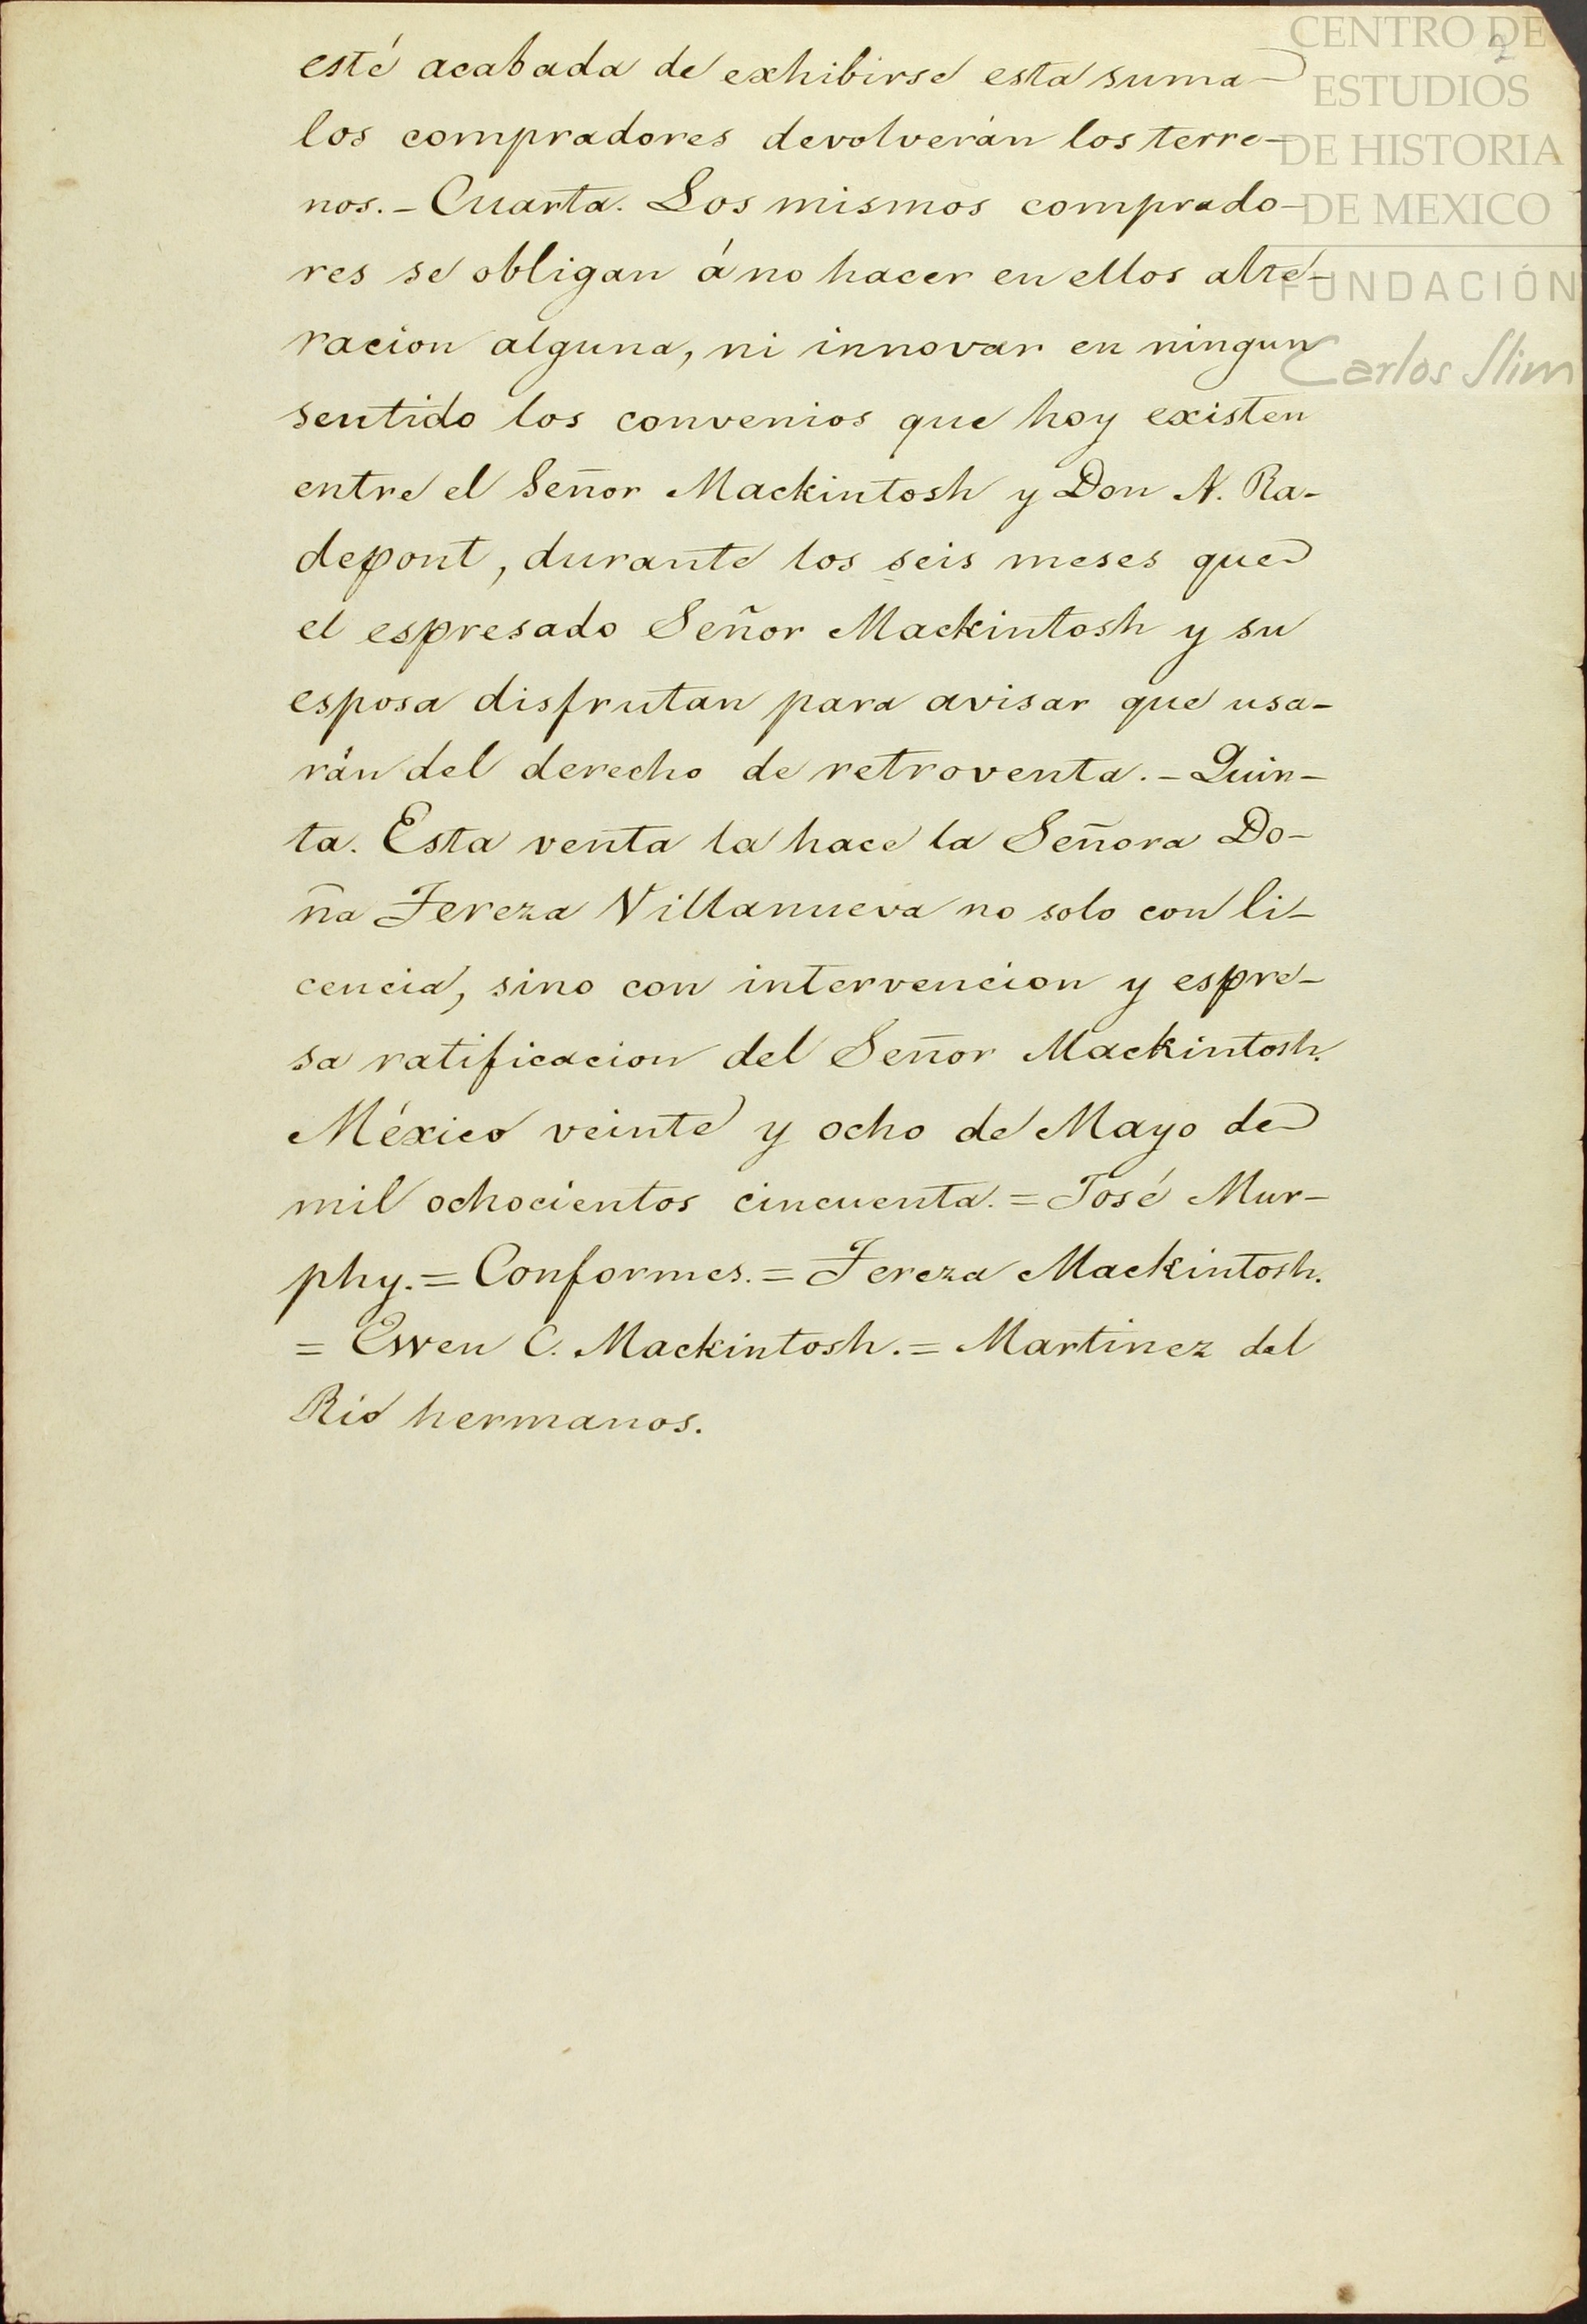 esté acabada de exhibirse esta suma
los compradores devolverán los terre-
nos.- Cuarta. Los mismos comprado-
res se obligan á no hacer en ellos alte-
racion alguna, ni innovar en ningun
sentido los convenios que hoy existen
entre el Señor Mackintosh y Don N. Ra-
depont, durante los seis meses que
el espresado Señor Mackintosh y su
esposa disfrutan para avisar que usa-
rán del derecho de retroventa.- Quin-
ta. Esta venta la hace la Señora Do-
ña Tereza Villanueva no solo con li-
cencia, sino con intervencion y espre-
sa ratificacion del Señor Mackintosh.
México veinte y ocho de Mayo de
mil ochocientos cincuenta.= José Mur-
phy.= Conformes.= Tereza Mackintosh.
= Ewen C. Mackintosh.= Martinez del
Rio hermanos.
2
CENTRO DE
ESTUDIOS
DE HISTORIA
DE MEXICO
FUNDACIÓN
Carlos Slim